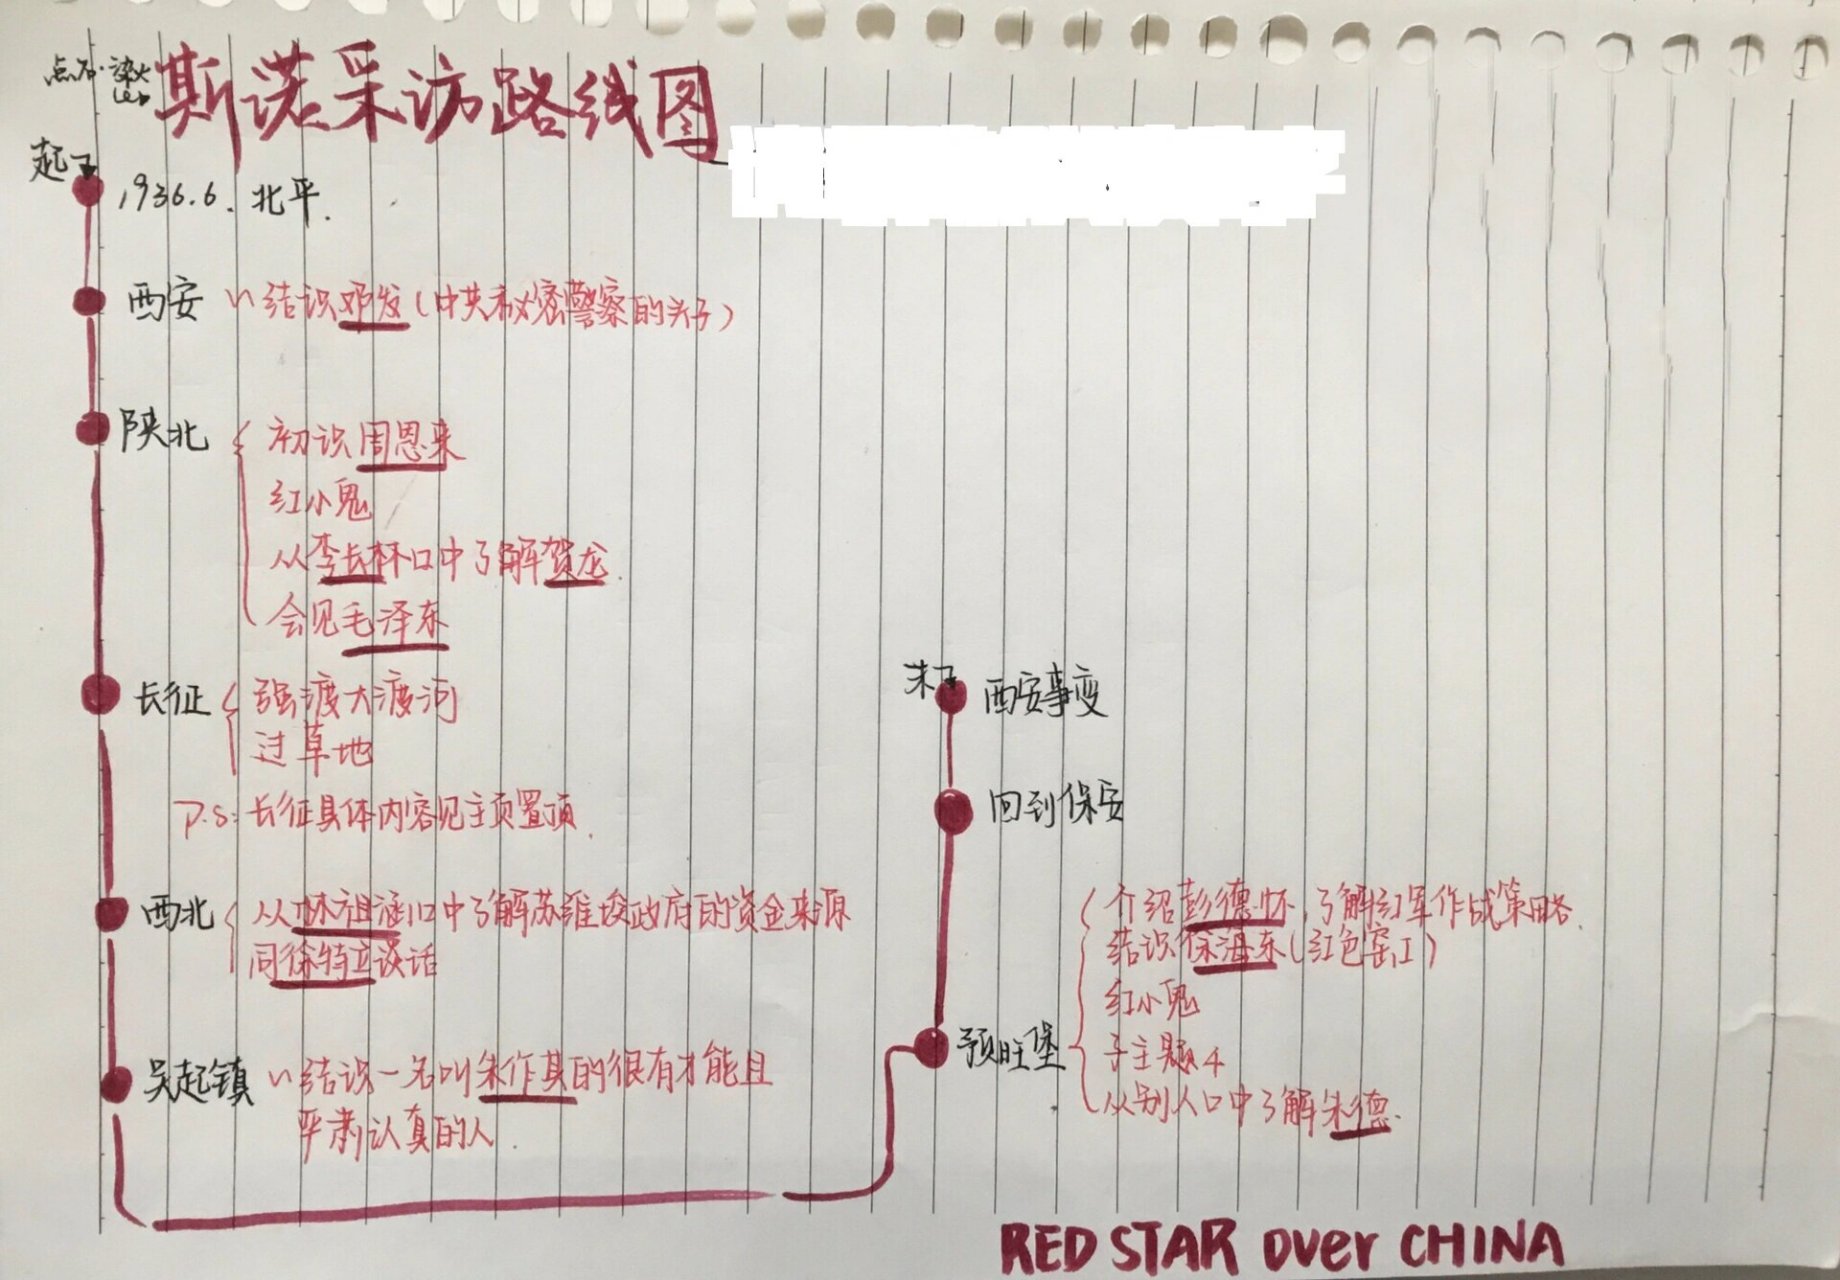 斯诺采访路线图
起
1936.6. 北平.
西安 结识邓发(中共秘密警察的头子)
陕北 初识周恩来
红小鬼
从李长林口中了解贺龙.
会见毛泽东
长征 强渡大渡河
过草地
P.S: 长征具体内容见主页置顶.
西北 从林祖涵口中了解苏维埃政府的资金来源
同徐特立谈话
吴起镇 结识一名叫朱作其的很有才能且
严肃认真的人.
末 西安事变
回到保安
预旺堡 介绍彭德怀,了解红军作战策略.
结识徐海东(红色窑工)
红小鬼
子主题4
从别人口中了解朱德.
RED STAR over CHINA